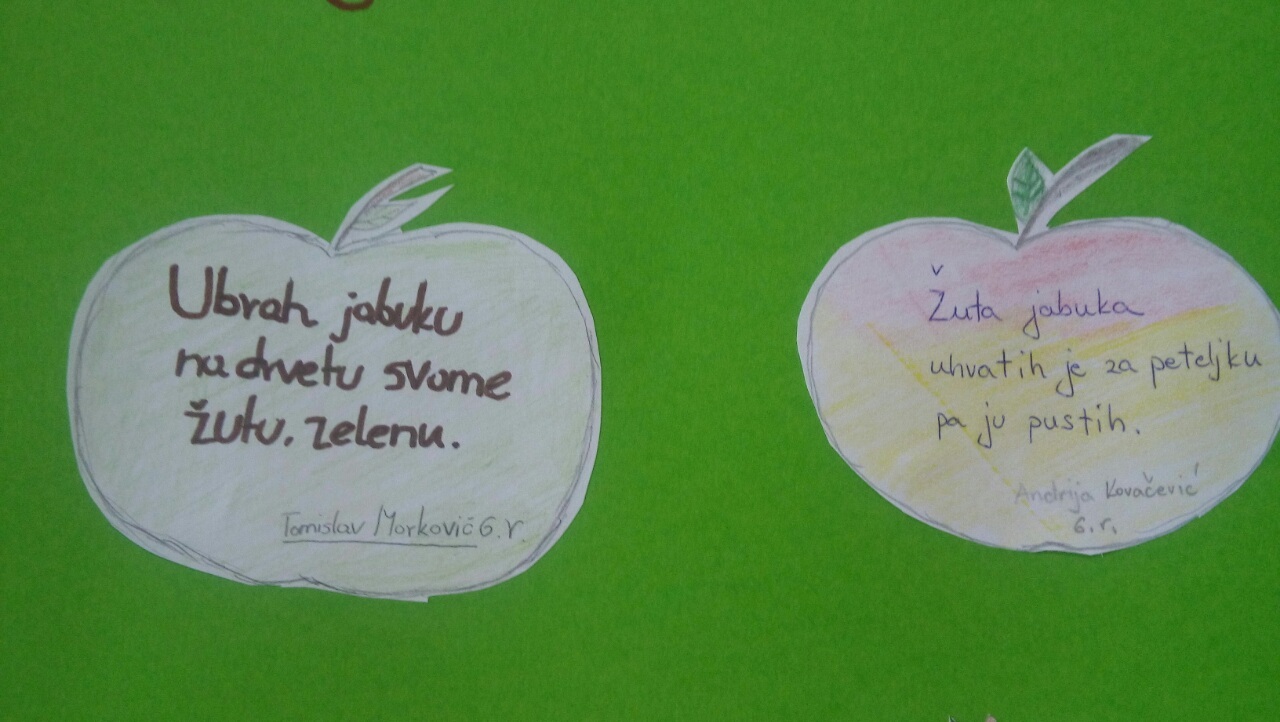 Ubrah jabuku
na drvetu svome
žutu. zelenu.
Tomislav Morković 6. r.
Žuta jabuka
uhvatih je za peteljku
pa ju pustih.
Andrija Kovačević
6. r.